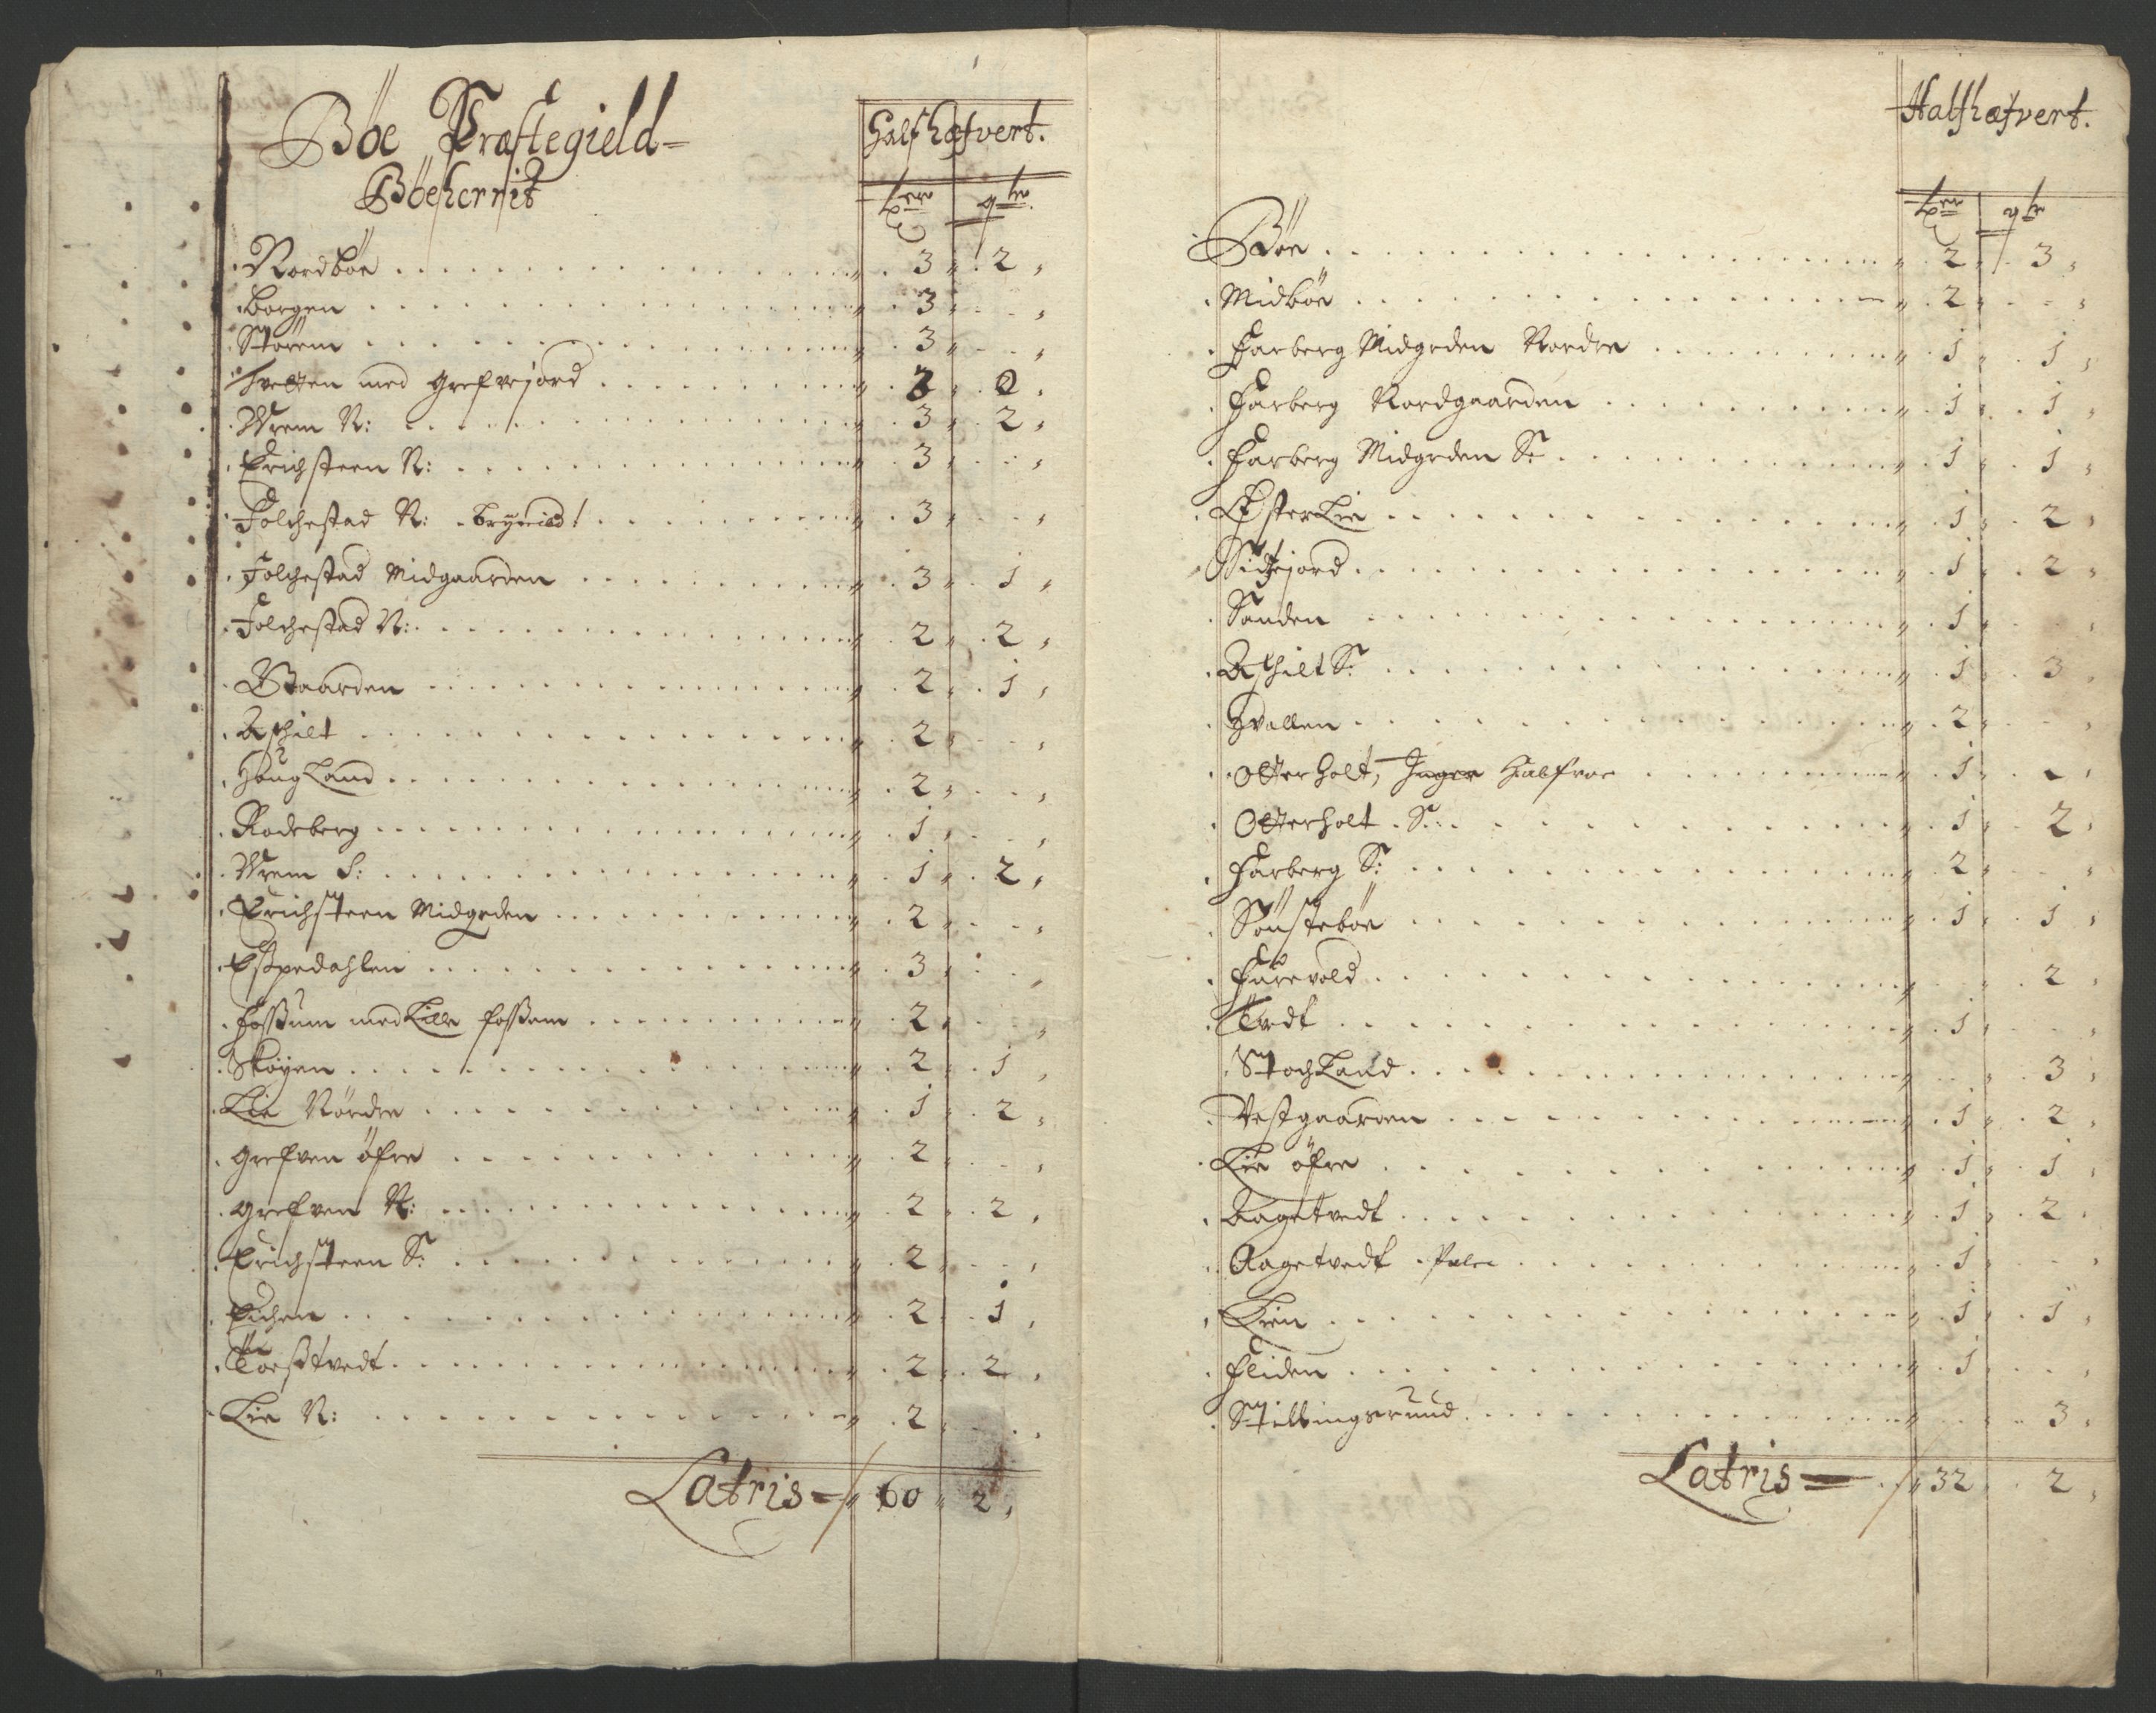 Böe Præstegield
Böeherrit
Half hæfvert.
ler qtr
Nordböe 3 2
Borgen 3
Störem 3
Tvetten med grefvejord 0
Wrem N: 3 2
Erichsteen N: 3
Folchestad N: 3
Folchestad Midgaarden 3 1
Folchestad N: 2 2
Gaarden 2 1
Aschilt 2
Hougland 2
Rodeberg 1
Wrem S: 1 2
Erichsteen Midgrden 2
Espedahlen 3
Fossum med Lille fossum 2
Skoyen 2 1
Lie Nördre 1 2
grefven öfre 2
grefven N: 2 2
Erichsteen S: 2
Eichen 2 1
Torsstvedt 2 2
Lie N: 2
Latris 60 2
Half hæfvert.
ler qtr
Böe 2 3
Midböe 2
Farberg Midgrden Nordre 1 1
Farberg Nordgaarden 1 1
Farberg Midgrden S: 1 1
Efster Lie 1 2
Sidtsjord 1 2
Sanden 1
Aschilt S: 1 3
Hvallen 2
Otterholt, Inger Halfvor 1
Otterholt S: 1 2
Farberg S: 2
Sönsteböe 1 1
Farevold 2
Tvedt 1
Stochland 3
Vestgaarden 1 2
Lie öfre 1 1
Aagetvedt 1 2
Aagetvedt 1
Lien 1 1
Fliden 1
Stillingsruud 3
Latris 32 2